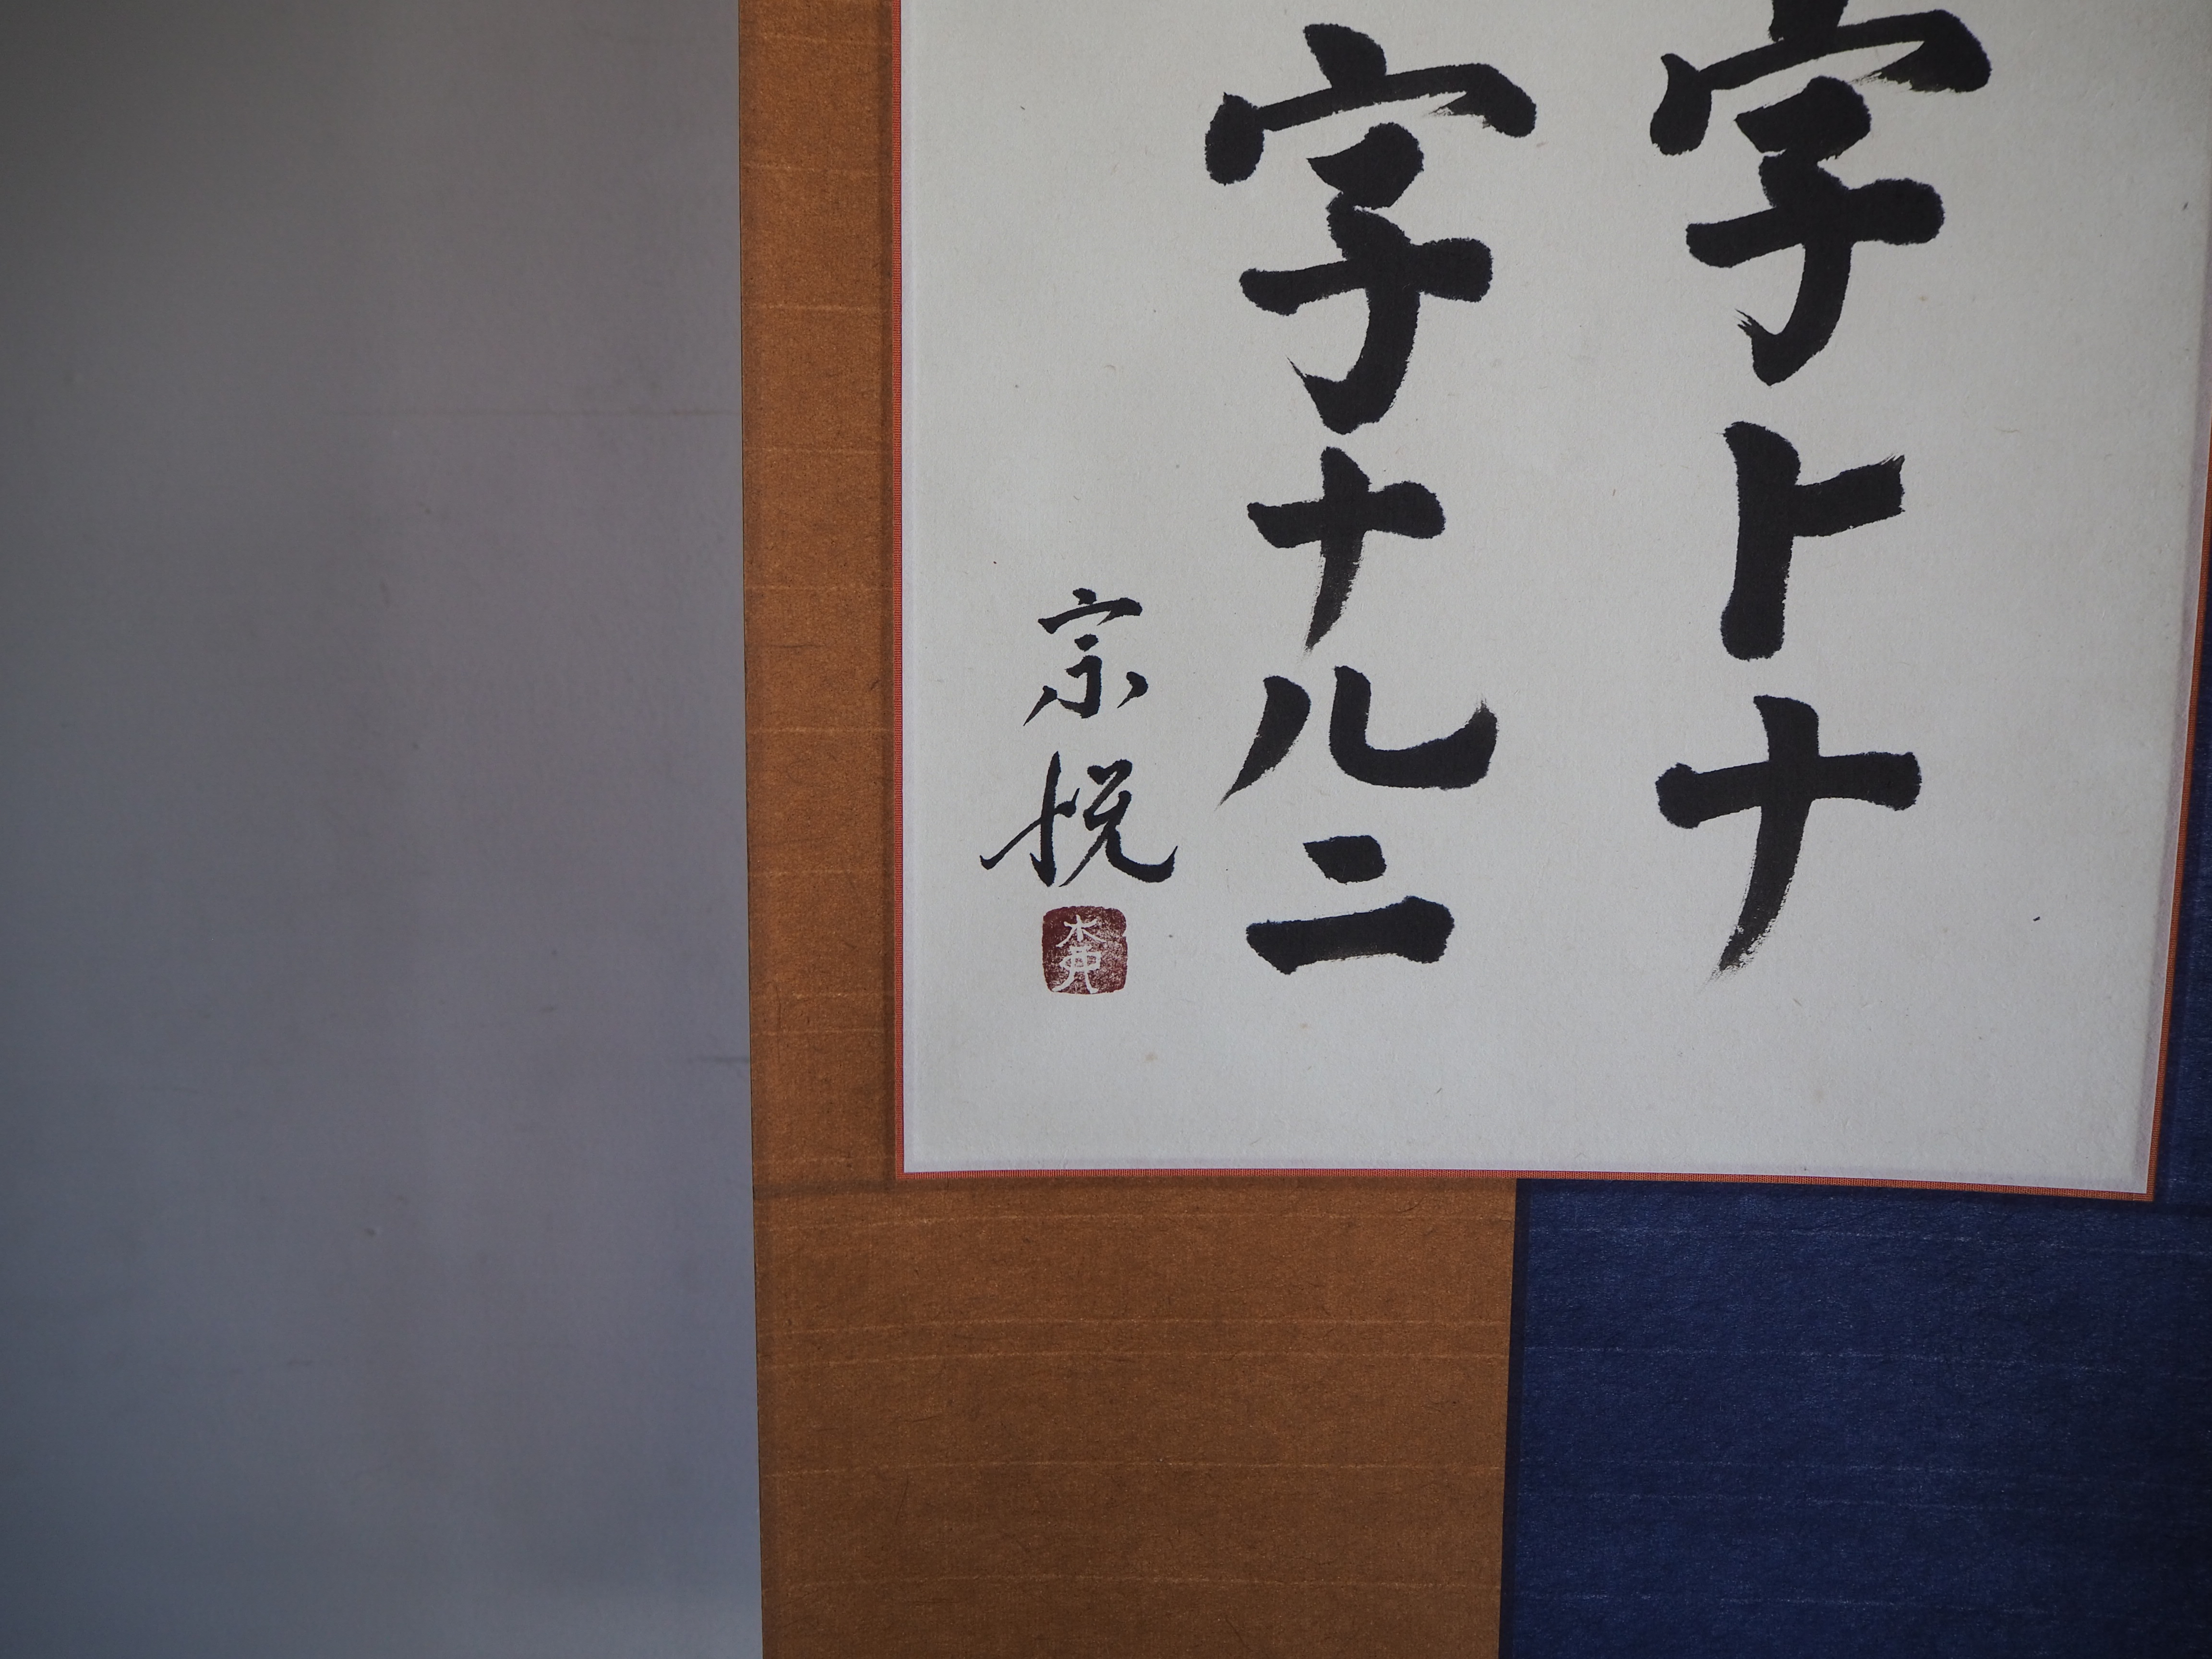 字トナ
字ナルニ
宗悦